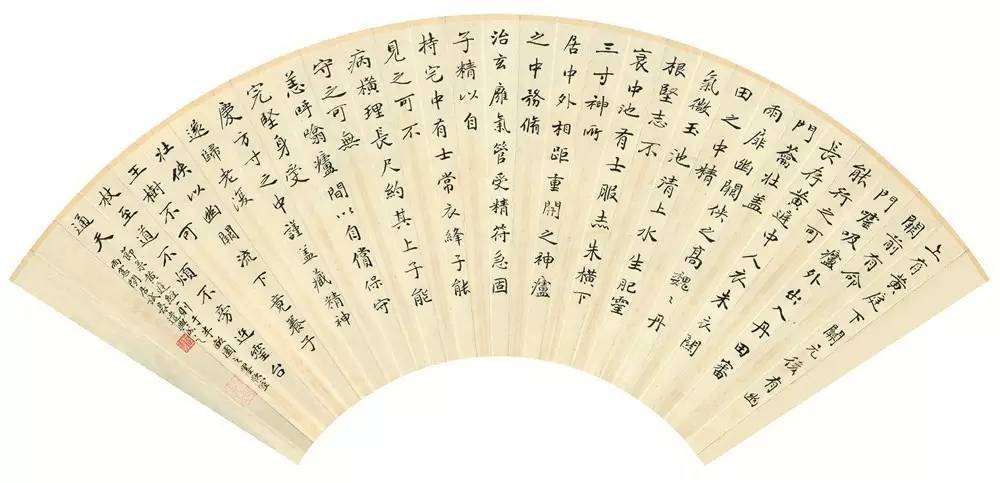 上有黃庭下關元後有幽
闕前有命
門噓吸廬外出入丹田審
能行之可
長存黃庭中人衣朱衣關
門籥壯蓋
兩扉幽闕俠之高魏〻丹
田之中精
氣微玉池清上水生肥靈
根堅志不
衰中池有士服赤朱橫下
三寸神所
居中外相距重閉之神廬
之中務脩
治玄廱氣管受精符急固
子精以自
持宅中有士常衣絳子能
見之可不
病橫理長尺約其上子能
守之可無
恙呼噏廬間以自償保守
完堅身受
慶方寸之中謹蓋藏精神
還歸老復
壯俠以幽闕流下竟養子
王樹不可
杖至道不煩不旁迕靈台
通天
節臨黃庭經